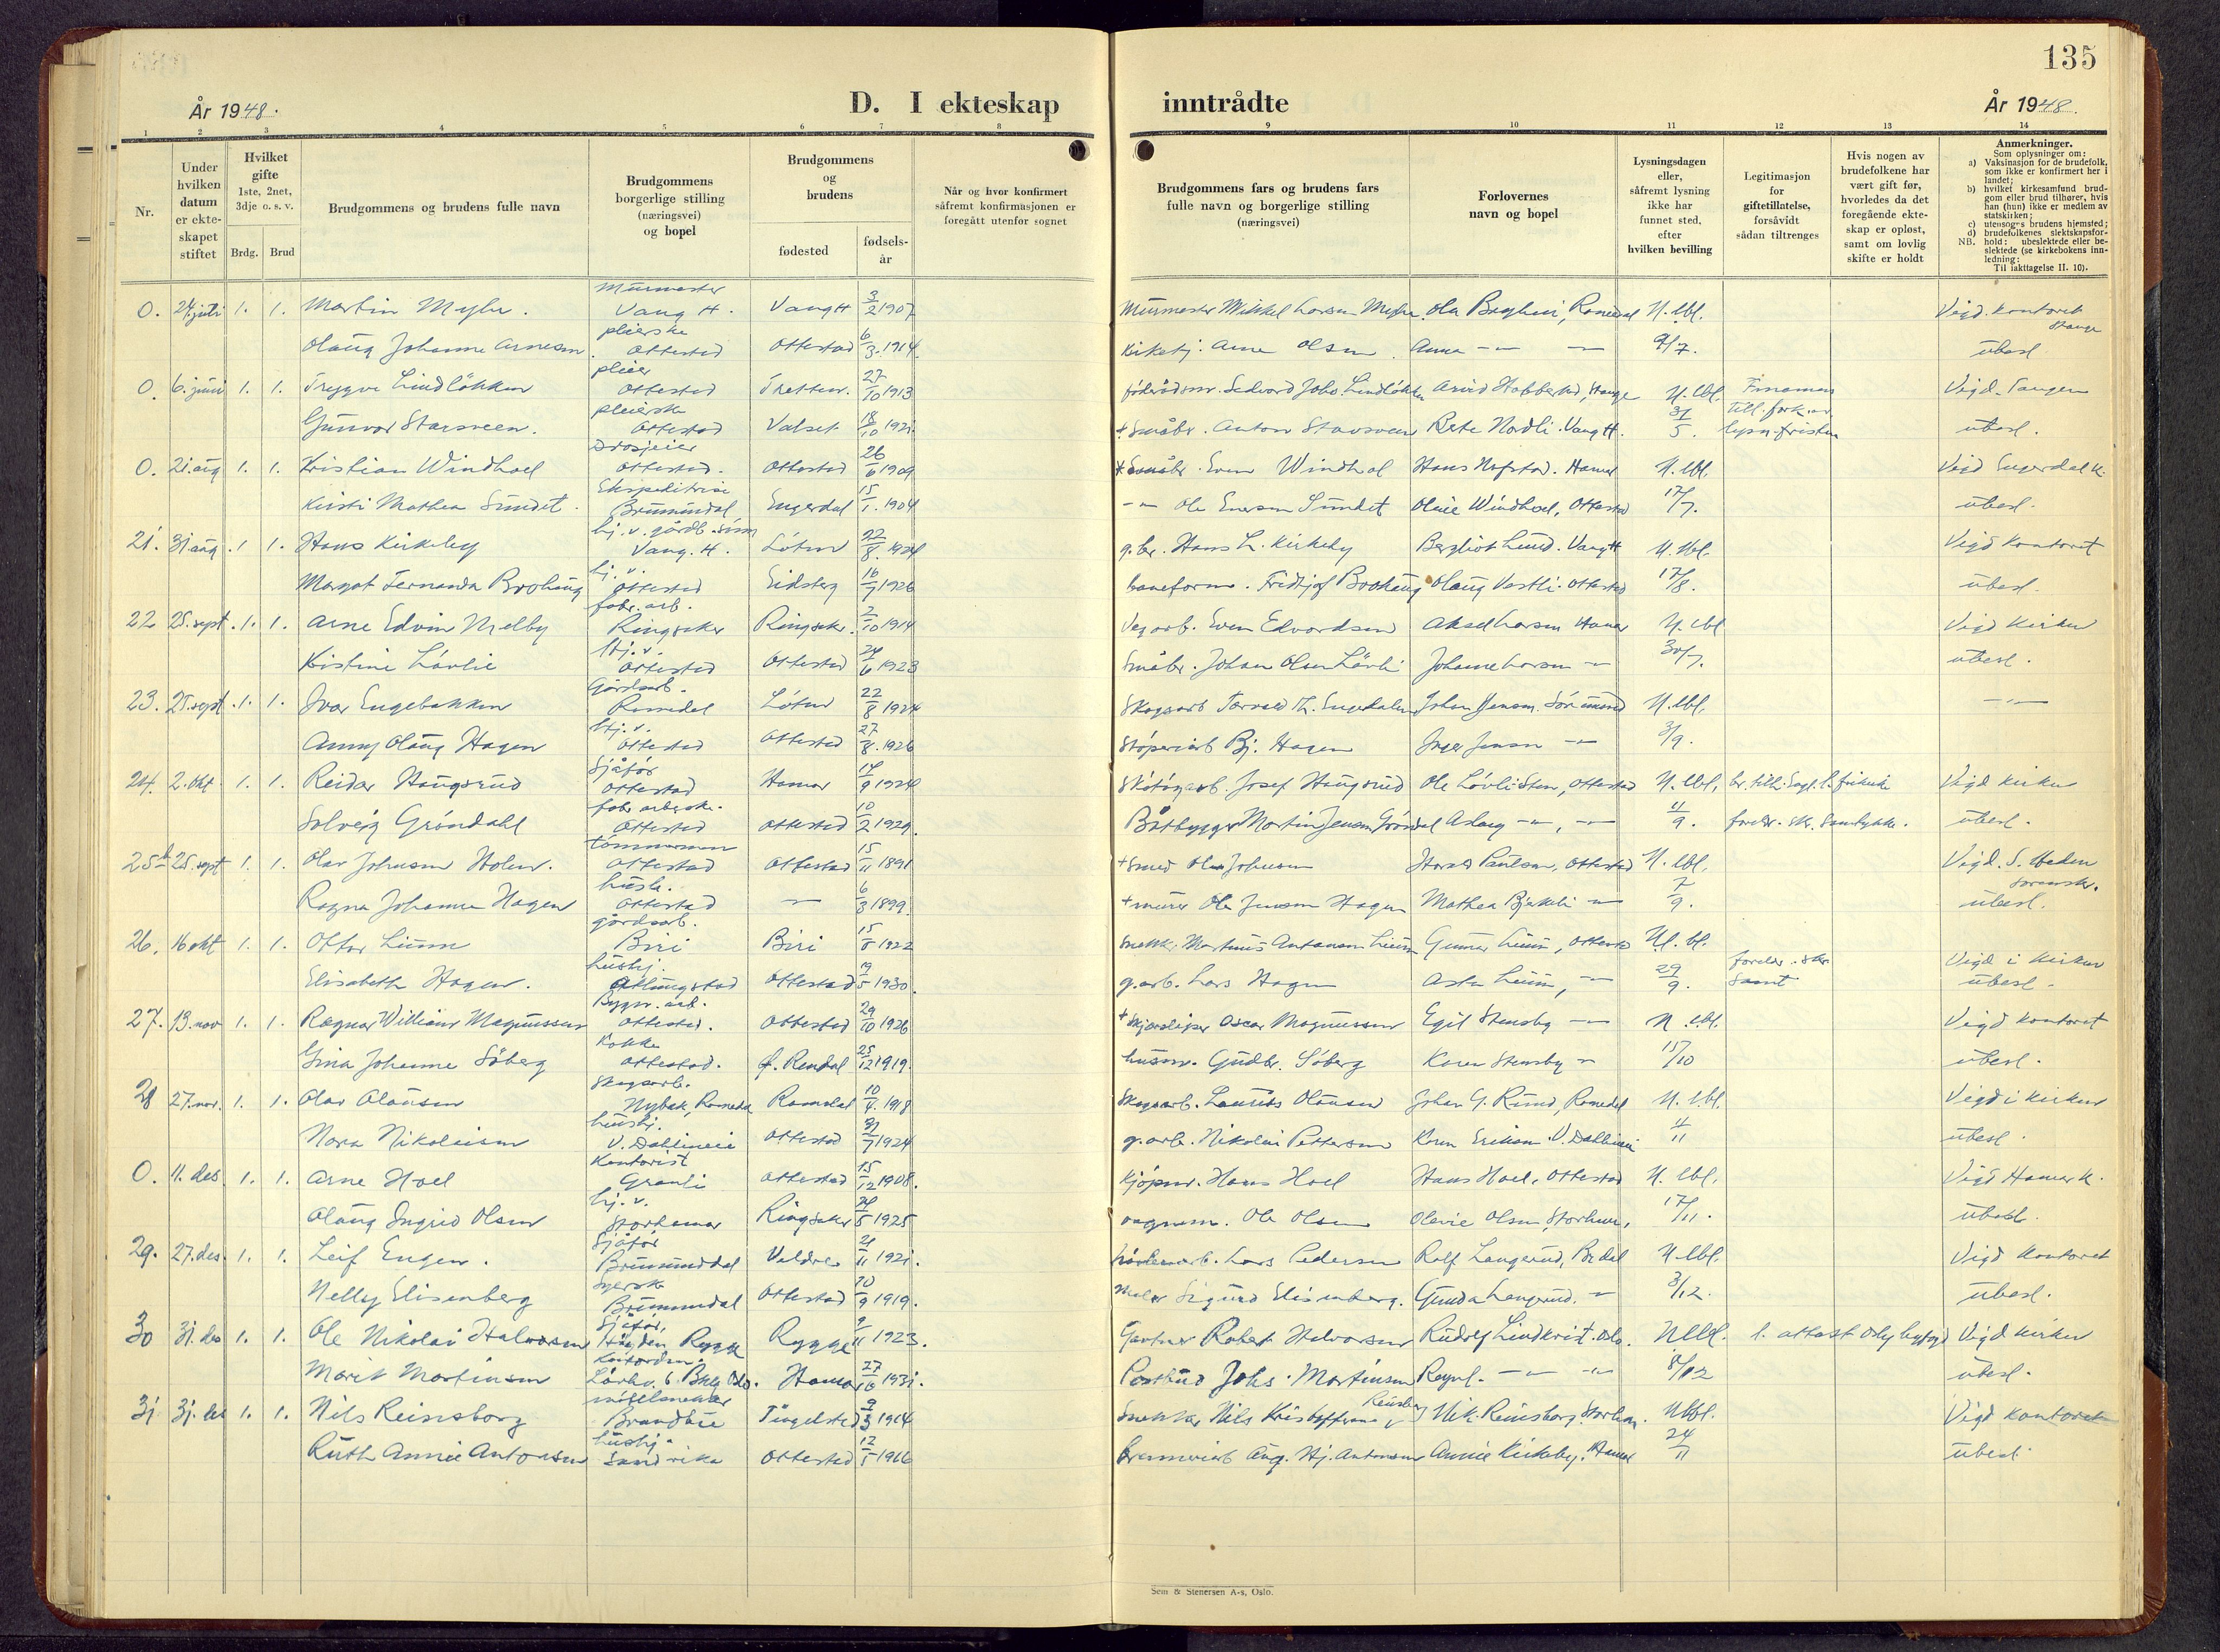 135
År 1948.
D. I ekteskap inntrådte
År 1948.
1 2 3 4 5 6 7 8 9 10 11 12 13 14
Nr.
Under hvilken datum er ekteskapet stiftet
Hvilket gifte 1ste, 2net, 3dje o. s. v.
Brdg. Brud
Brudgommens og brudens fulle navn
Brudgommens borgerlige stilling (næringsvei) og bopel
Brudgommens og brudens
fødested
fødsels-år
Når og hvor konfirmert såfremt konfirmasjonen er foregått utenfor sognet
Brudgommens fars og brudens fars fulle navn og borgerlige stilling (næringsvei)
Forlovernes navn og bopel
Lysningsdagen eller, såfremt lysning ikke har funnet sted, efter hvilken bevilling
Legitimasjon for giftetillatelse, forsåvidt sådan tiltrenges
Hvis nogen av brudefolkene har vært gift før, hvorledes da det foregående ekteskap er opløst, samt om lovlig skifte er holdt
Anmerkninger.
Som oplysninger om:
a) Vaksinasjon for de brudefolk, som ikke er konfirmert her i landet;
b) hvilket kirkesamfund brudgom eller brud tilhører, hvis han (hun) ikke er medlem av statskirken;
c) utensogns brudens hjemsted;
d) brudefolkenes slektskapsforhold: ubeslektede eller beslektede (se kirkebokens innledning:
NB. Til iakttagelse II. 10).
0. 24. juli 1. 1. Martin Myhr. Murmester Vang H. Vang H 3/2 1907 Murmester Mikkel Larsen Ola Berghein, Romedal U. lbl. Vigd. kontoret Stange
Olaug Johanne Arnesen pleierske Ottestad Ottestad 6/3. 1914 Kirketj. Arne Olsen. Anna — — 9/7. ubesl.
0. 6. juni 1. 1. Tryggve Lindløkken pleier Ottestad Tretten. 27/10 1913 Lindløkken Arvid Stange U. lbl. Vigd. Tangen
Gunvor Starsveen. pleierske Ottestad Valset 18/10 1921 + Småbr. Anton Stavsveen Nordli. Vang H. 31/5. till. fork. av lysn. fristen ubesl.
0. 21. aug 1. 1. Kristian Windhoel Drosjeeier Ottestad. Ottestad 26/6 1909 + Småbr. Even Windhol Hans Hofstad. Hamar U. lbl. Vigd Engerdal k.
Kirsti Mathea Sundet. Ekspeditrise Brumundal Engerdal 15/1. 1904 — Ole Enersen Sundet Olevie Windhoel, Ottestad 17/7. ubesl.
21. 31. aug. 1 1. Hans Kirkeby hj. v. gårdb. sønn Vang. H. Løten 22/8. 1924 g.br. Hans L. Kirkeby Bergliot Lund. Vang H U. lbl. Vigd kontoret
Margot Fernanda Brohaug hj. v. Ottestad Eidsberg 16/7 1926 baneform. Fridtjof Brohaug Olaug Vestli. Ottestad 17/8. ubesl.
22 25. sept. 1. 1. Arne Edvin Melby fabr. arb. Ringsaker Ringsaker. 2/10 1914 Veg arb. Even Edvardsen Aksel Larsen Hamar U. lbl Vigd Kirken
Kristine Løvlie hj. v. Ottestad Ottestad 24/6 1923 Småbr. Johan Olsen Løvli Johanne Larsen — 30/7. ubesl.
23. 25. sept. 1. 1. Ivar Engebakken Gårdsarb. Romedal Løten 22/8 1924 Skogsarb Torvald Th. Engedalen Johan Jensen. U. lbl. — —
Anny Olaug Hagen hj. v. Ottestad Ottestad 27/8. 1926 Støperiarb Bj. Hagen Inger Jensen — 3/9.
24. 2. okt. 1. 1. Reidar Haugsrud Sjåfør Ottestad Hamar 14/9 1924 Skotøyarb. Josef Haugsrud Ole Løvli Sten, Ottestad U. lbl. Vigd kirken
Solveig Grøndahl fabr. arbeidsk. Ottestad Ottestad 10/2 1929. Båtbygger Martin Jensen Grøndal Aslaug —, — 11/9. foreldr. skr. Samtykke. ubesl.
25 25. sept 1. 1. Olav Johnsen Holen. tømmermann Ottestad Ottestad 15/11 1891 + Smed Ole Johnsen Harald Paulsen, Ottestad U. lbl. Vigd. S. Heden sorenskr.
Ragna Johanne Hagen husb. Ottestad — 6/3 1899. + murer Ole Jensen Hagen Mathea Bjekeli — 7/9. ubesl.
26. 16 okt 1. 1. Ottar Liunn gårdsarb. Biri Biri 15/8 1922 Snekk. Martinus Antonsen Gunnar Ottestad U. lbl. Vigd i kirken
Elisabeth Hagen. hushj. Atlungstad Ottestad 19/5 1930. g.arb. Lars Hagen Asta — 29/9. foreldr. skr. Samt ubesl.
27. 13. nov 1. 1. Ragnar William Magnussen Bygn. arb. Ottestad. Ottestad 29/10 1926 + Skjærsliper Oscar Magnussen Egil Stensby — U. lbl. Vigd kontoret
Gina Johanne Søberg Kokke Ottestad. Ø. Rendal 25/12 1919. husm. Gudbr. Søberg Karen Stensby — 15/10 ubesl.
28 27. nov. 1. 1. Olav Olausen Skogsarb. Nybak, Romedal Romedal 10/4. 1918 Skogsarb. Laurits Olausen Johan G. Rund, Romedal U. lbl. Vigd i kirken
Nora Nikolaisen hushj. V. Dahlineie Ottestad 31/7 1924 g.arb. Nikolai Pettersen Karen Eriksen. V. Dahlineie 4/11 ubesl.
0. 11. des. 1. 1. Arne Hoel Kontorist Granli Ottestad 15/12 1908. Kjøpm. Hans Hoel Hans Hoel, Ottestad U. lbl. Vigd Hamar k.
Olaug Ingrid Olsen hj. v. Storhamar Ringsaker 24/5 1925 vognm. Ole Olsen Olevie Olsen Storham. 17/11. ubesl.
29. 27. des. 1. 1. Leif Engen. Sjåfør Brumunddal Veldre 21/11 1921. Lars Pedersen Rolf Langerud, Br.dal U. lbl. Vigd kontoret
Nelly Elisenberg Syerske Brumunddal Ottestad 10/9 1919. Maler Sigurd Elisenberg. Gunda Langerud. — 3/12. ubesl.
30 31. des 1. 1. Ole Nikolai Halvorsen Sjåfør, Høgden Rygge Rygge 9/11 1923. Gartner Robert Halvorsen Rudolf Lindkvist. Oslo. U lbl. l. attest Oslo byfogd Vigd kirken
Marit Martinsen Kontordm. Hamar 27/10 1931. Postbud Johs. Martinsen Ragnh. — — 8/12 ubesl.
31 31. des 1. 1. Nils Reinsborg møbelsnekker Brandbu Tingelstad 9/3 1914 Snekker Nils Kristoffersen Reinsborg Nik. Reinsborg. Storham. U lbl. Vigd kontoret
Ruth Annie Antonsen hushj. Sandvika Ottestad 12/5 1916 Brenneriarb Aug. Hj. Antonsen Annie Kirkeby. Hamar 24/11 ubesl.
Sem & Stenersen A-s, Oslo.